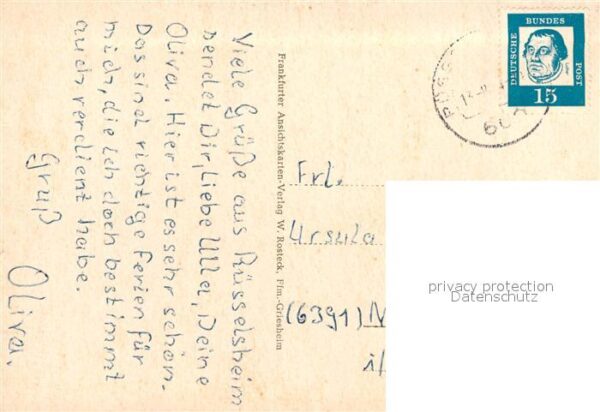 Viele Grüße aus Rüsselsheim
sendet Dir, liebe Ulla, Deine
Oliva. Hier ist es sehr schön.
Das sind richtige Ferien für
mich, die ich doch bestimmt
auch verdient habe.
Gruß
Oliva.
Frankfurter Ansichtskarten-Verlag W. Rosteck, Ffm.-Griesheim
DEUTSCHE BUNDES POST
15
Frl.
Ursula
(6391) N
i/
privacy protection
Datenschutz